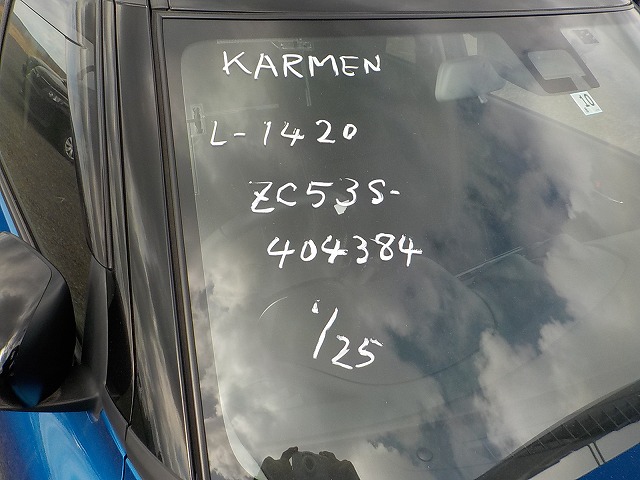 KARMEN
L-1420
ZC53S-
404384
1/25
10